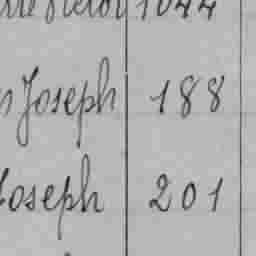 1044
Joseph 188
Joseph 201